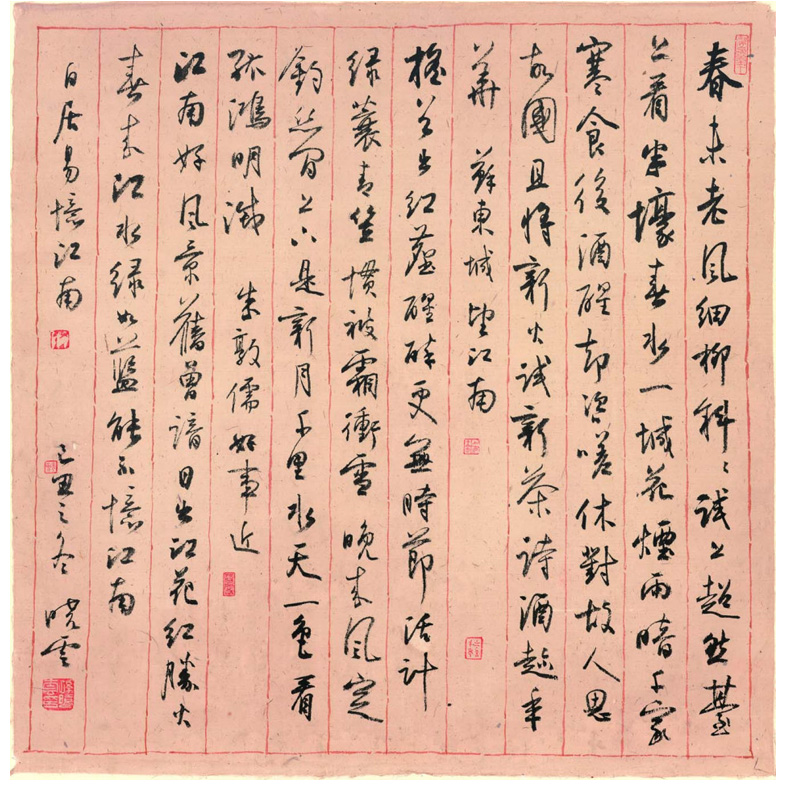 春未老風細柳斜〻試上超然臺
上看半壕春水一城花煙雨暗千家
寒食後酒醒却咨嗟休對故人思
故國且將新火試新茶詩酒趁年
華 蘇東坡望江南
搖首出紅塵醒醉更無時節活計
綠蓑青笠慣披霜衝雪晚來風定
釣絲閒上下是新月千里水天一色看
孤鴻明滅 朱敦儒好事近
江南好風景舊曾諳日出江花紅勝火
春來江水綠如藍能不憶江南
白居易憶江南 己丑之冬 曉雲